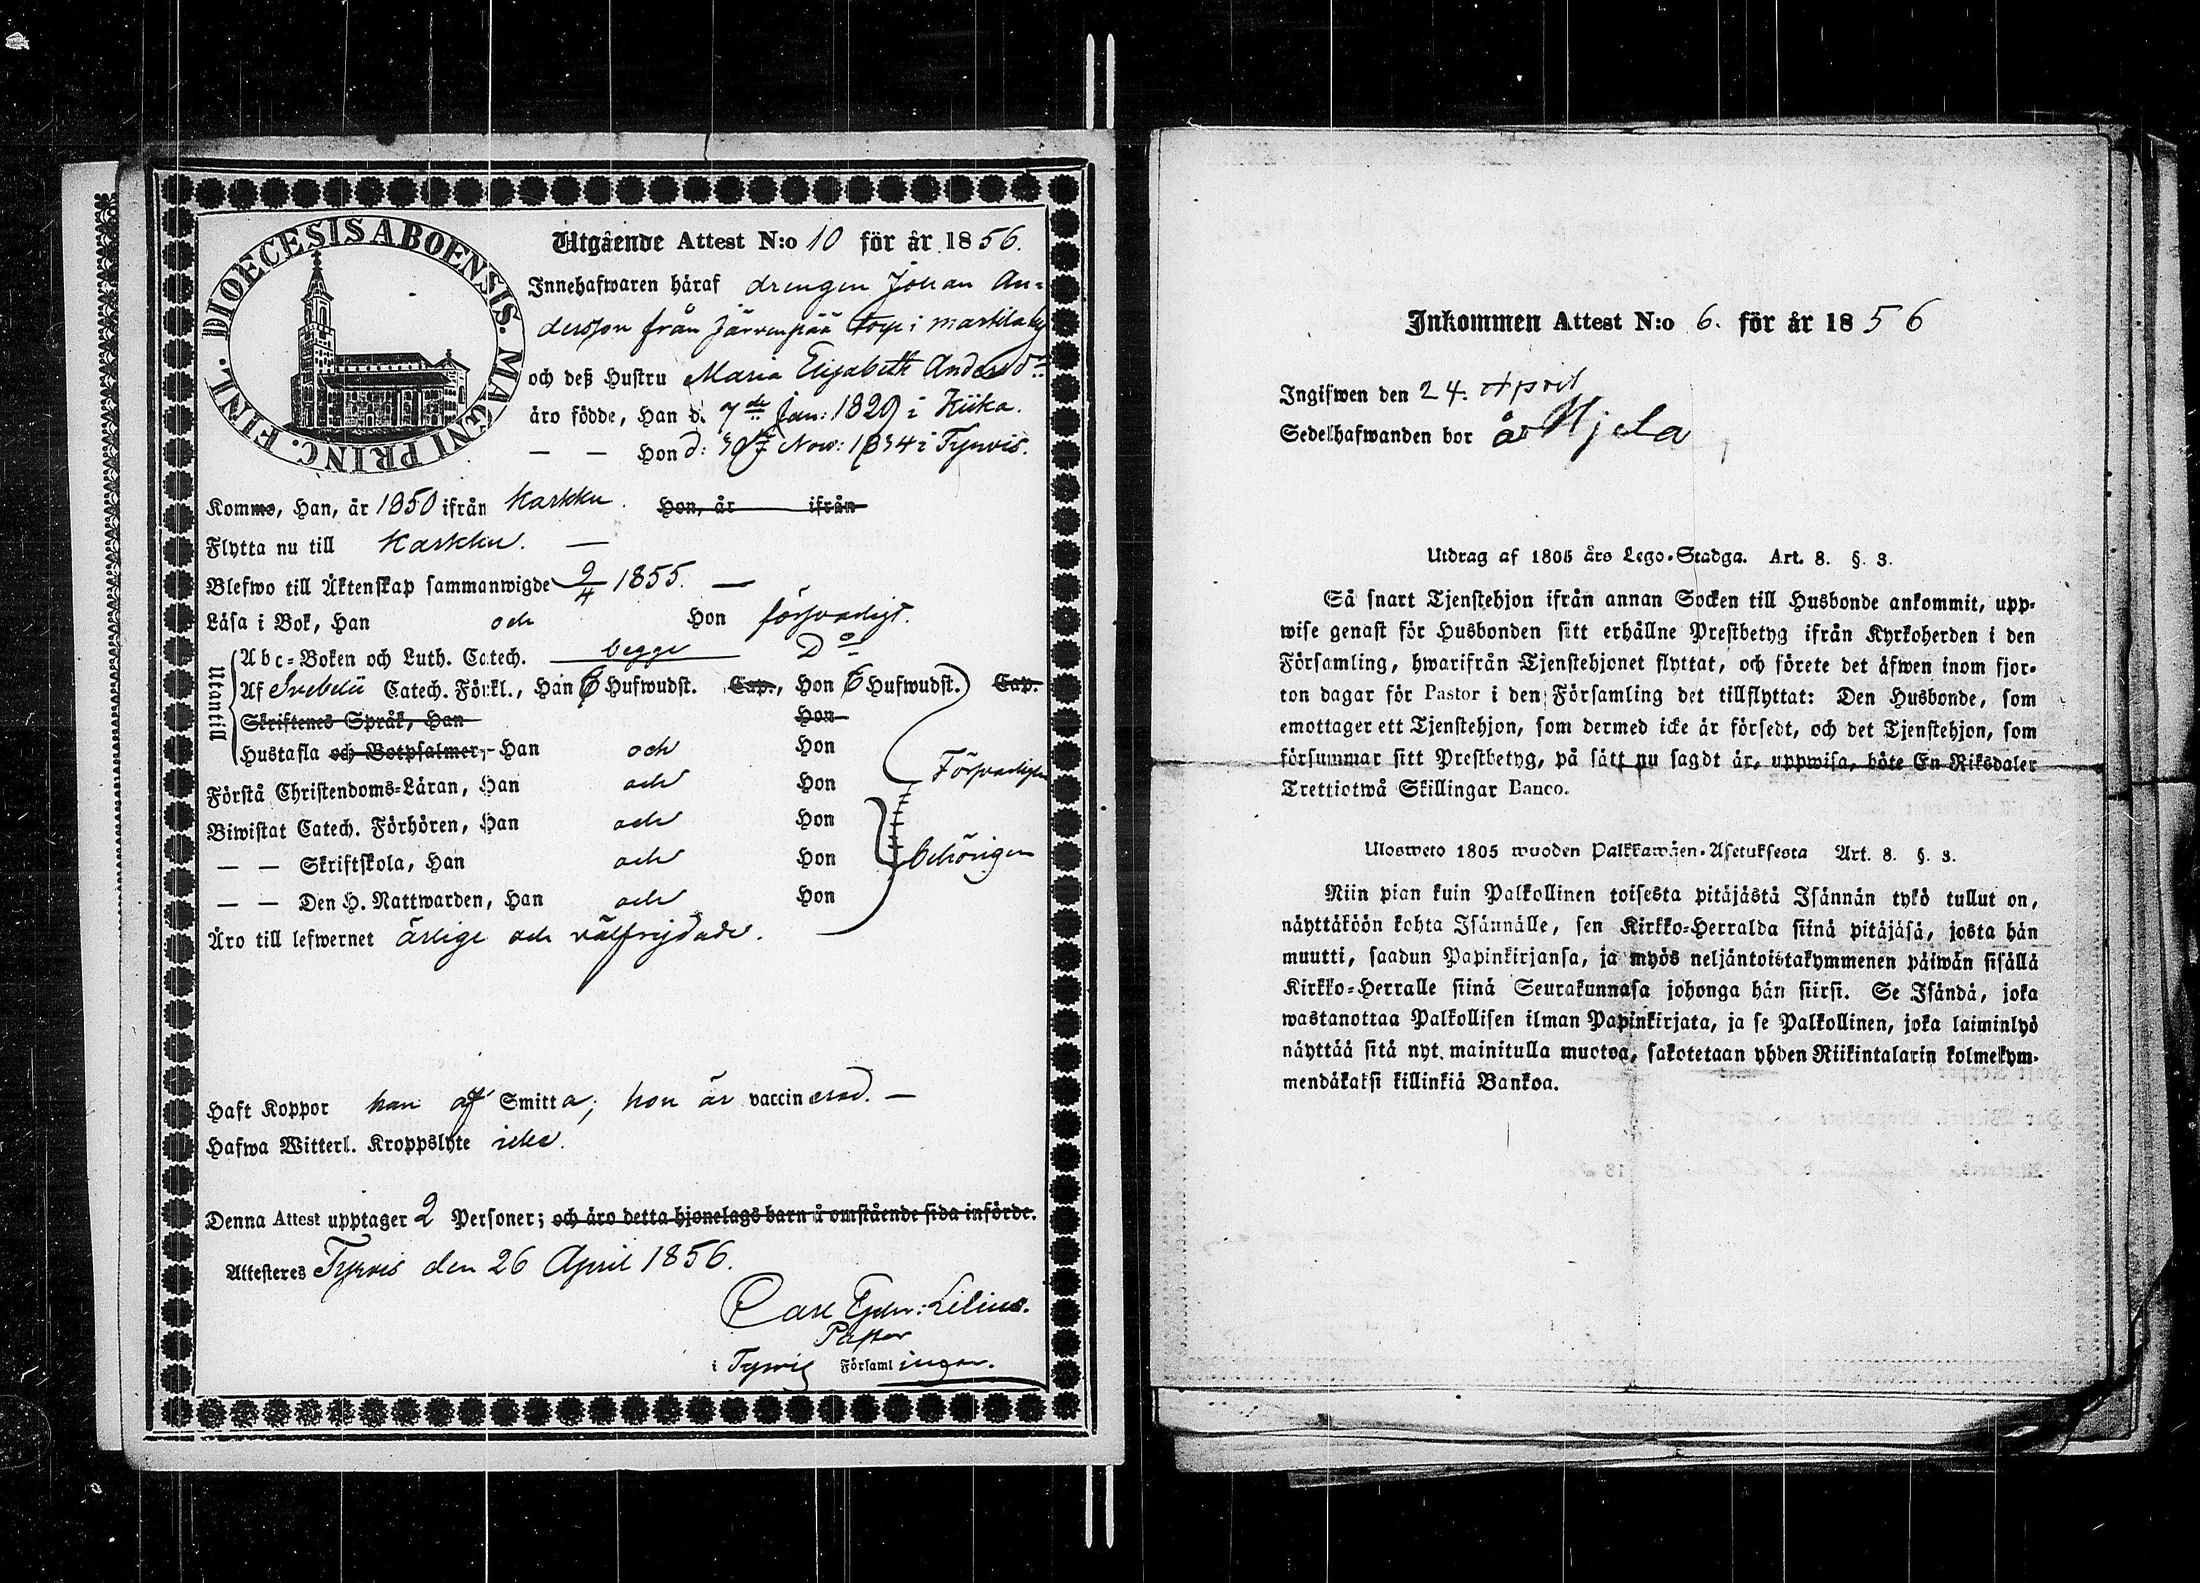 DIOECESIS ABOENSIS. MAGNI PRINC. FINL.
Utgående Attest N:o 10 för år 1856.
Innehafwaren häraf drengen Johan An=
dersson från Järvenpää torp i Markila by
och deß Hustru Maria Elisabeth Andersd:r
äro födde, Han d. 7de Jan: 1829 i Kiika.
— — Hon d: Nov: 1834 i Tyrvis.
Kommo, Han, år 1850 ifrån Karkku. Hon, år ifrån
Flytta nu till Karkku. —
Blefwo till Äktenskap sammanwigde 9/4 1855. —
Läsa i Bok, Han och Hon försvarligt.
Utantill
Abc=Boken och Luth. Catech. begge Do
Af Svebelii Catech. Förkl., Han 6 Hufwudst. Cap., Hon 6 Hufwudst. Cap.
Skriftenes Språk, Han Hon
Hustafla och Botpsalmer, Han och Hon
Förstå Christendoms=Läran, Han och Hon Försvarligen
Biwistat Catech. Förhören, Han och Hon
— — Skriftskola, Han och Hon behörigen
— — Den H. Nattwarden, Han och Hon
Äro till lefwernet ärlige och välfrejdade.
Haft Koppor han af Smitta; hon är vaccinerad. —
Hafwa Witterl. Kroppslyte icke.
Denna Attest upptager 2 Personer; och äro detta hjonelags barn å omstående sida införde.
Attesteres Tyrvis den 26 April 1856.
Carl Lilius.
Pastor
i Tyrvis Församlingar.
Inkommen Attest N:o 6. för år 1856
Ingifwen den 24. April
Sedelhafwanden bor å Hjela
Utdrag af 1805 års Lego-Stadga. Art. 8. §. 3.
Så snart Tjenstehjon ifrån annan Socken till Husbonde ankommit, upp-
wise genast för Husbonden sitt erhållne Prestbetyg ifrån Kyrkoherden i den
Församling, hwarifrån Tjenstehjonet flyttat, och förete det äfwen inom fjor-
ton dagar för Pastor i den Församling det tillflyttat: Den Husbonde, som
emottager ett Tjenstehjon, som dermed icke är försedt, och det Tjenstehjon, som
försummar sitt Prestbetyg, på sätt nu sagdt är, uppwisa, böte En Riksdaler
Trettiotwå Skillingar Banco.
Ulosweto 1805 wuoden Palkkawäen-Asetuksesta Art. 8. §. 3.
Niin pian kuin Palkollinen toisesta pitäjästä Isännän tykö tullut on,
näyttäköön kohta Isännälle, sen Kirkko=Herralda siinä pitäjäsä, josta hän
muutti, saadun Papinkirjansa, ja myös neljäntoistakymmenen päiwän sisällä
Kirkko=Herralle siinä Seurakunnasa johonga hän siirsi. Se Isändä, joka
wastanottaa Palkollisen ilman Papinkirjata, ja se Palkollinen, joka laiminlyö
näyttää sitä nyt mainitulla muotoa, sakotetaan yhden Riikintalarin kolmekym-
mendäkaksi killinkiä Bankoa.